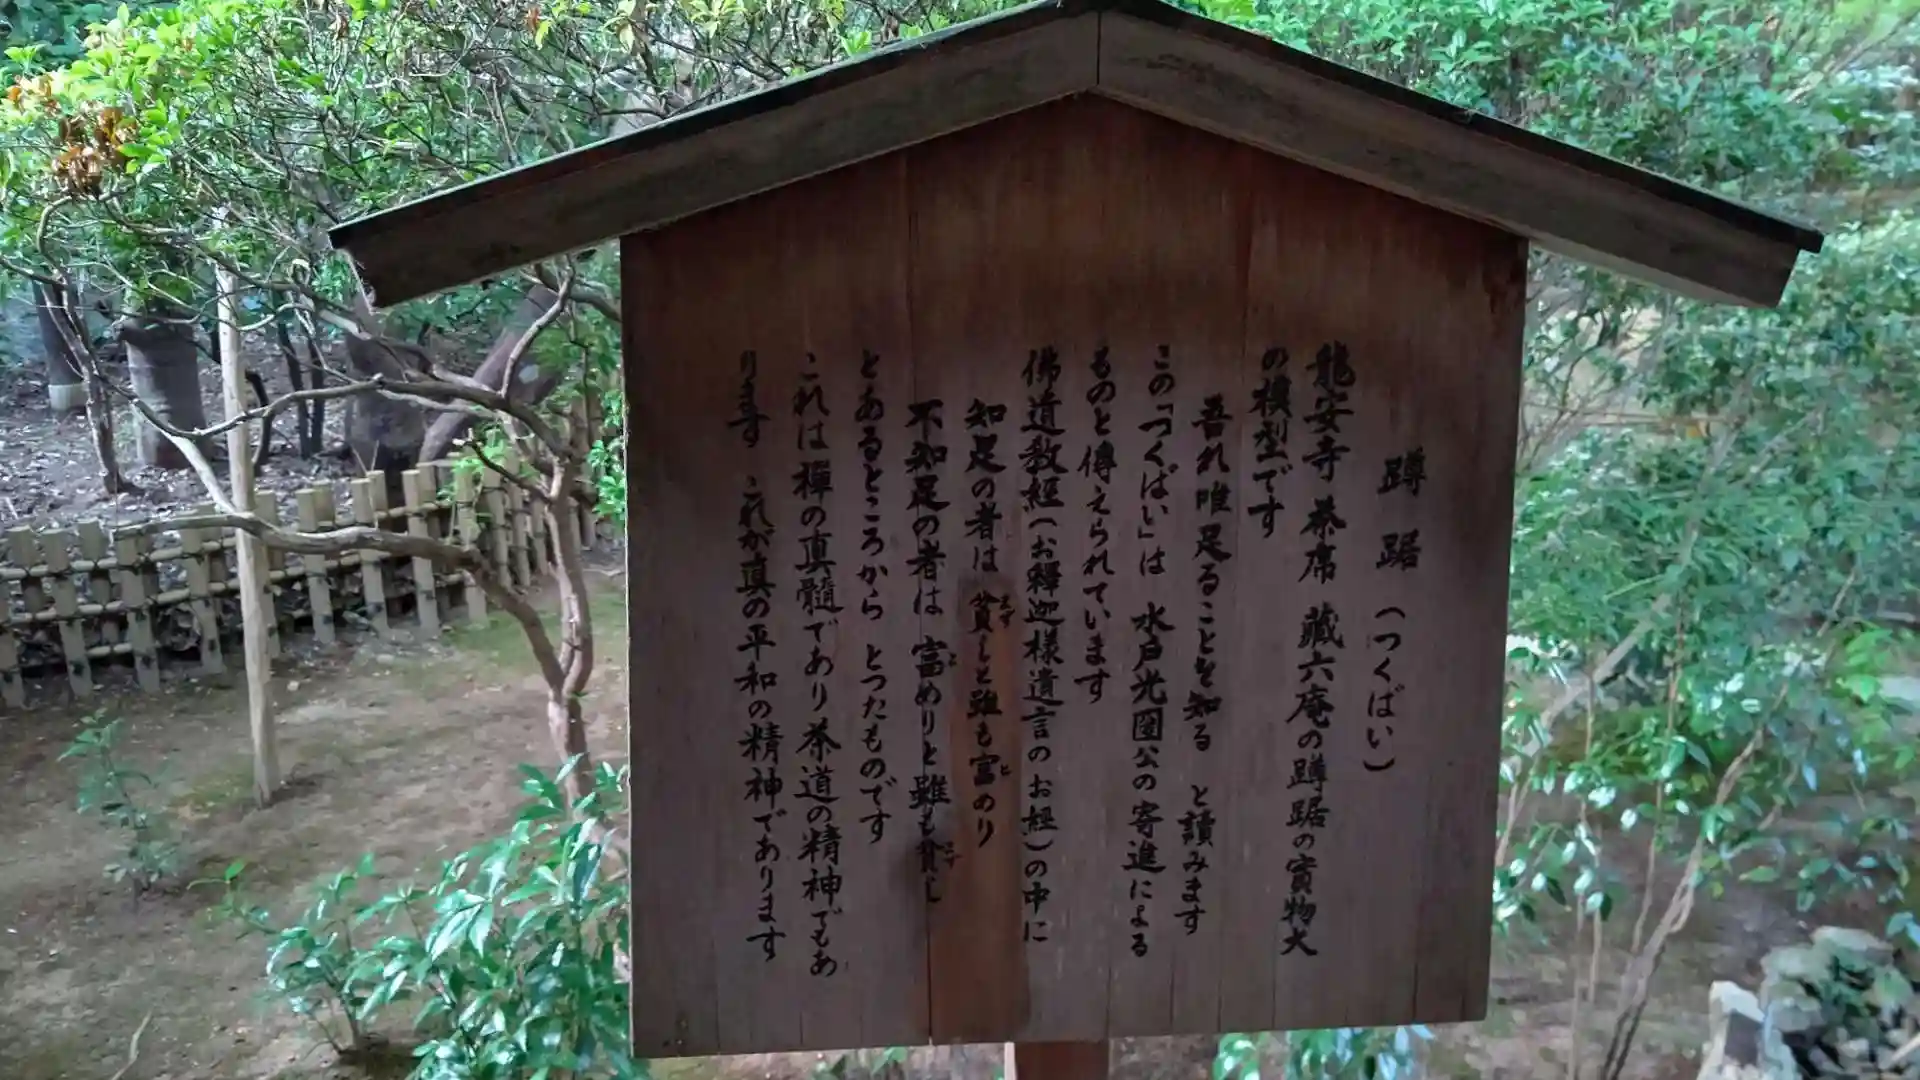 蹲踞(つくばい)
龍安寺 茶席 藏六庵の蹲踞の實物大
の模型です
吾れ唯足ることを知る と讀みます
この「つくばい」は 水戸光圀公の寄進による
ものと傳えられています
佛遺教經(お釋迦様遺言のお經)の中に
知足の者は 貧しと雖も富めり
不知足の者は 富めりと雖も貧し
とあるところから とつたものです
これは禅の真髓であり茶道の精神でもあ
ります これが真の平和の精神であります